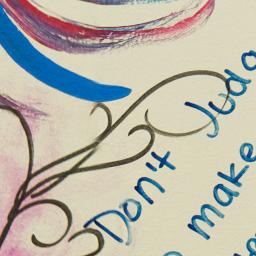 Don't Judg
make